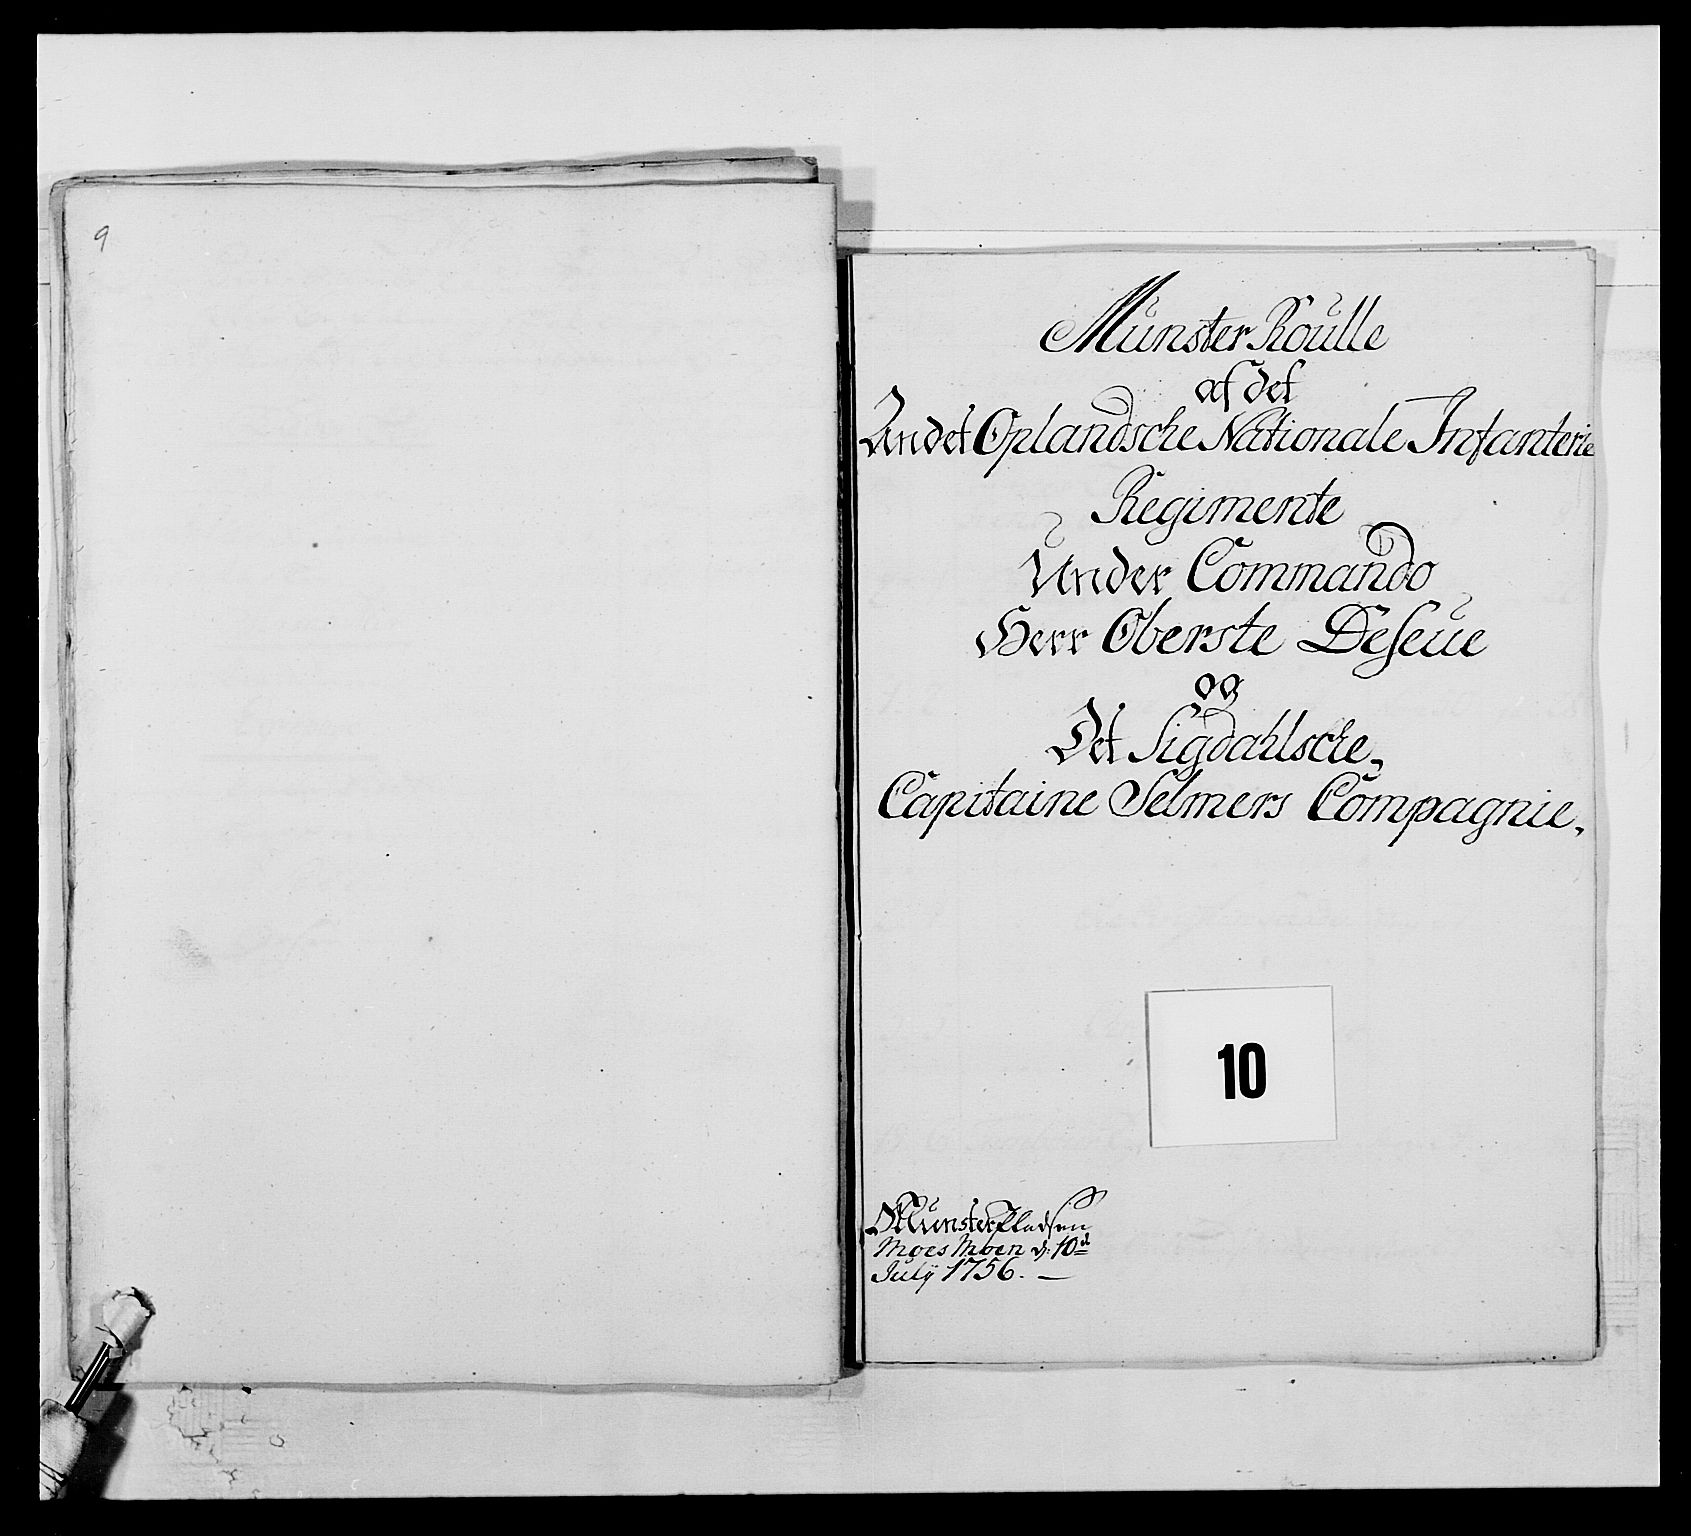 9
Münster Roulle
af det
Andet Oplandsche Nationale Infanterie
Regimente
Under Commando
Herr Oberste DeSeue
og
Det Sigdahlsche
Capitaine Selmers Compagnie.
10
Münster Pladsen
Moes Moen d: 10d
Julÿ 1756. —